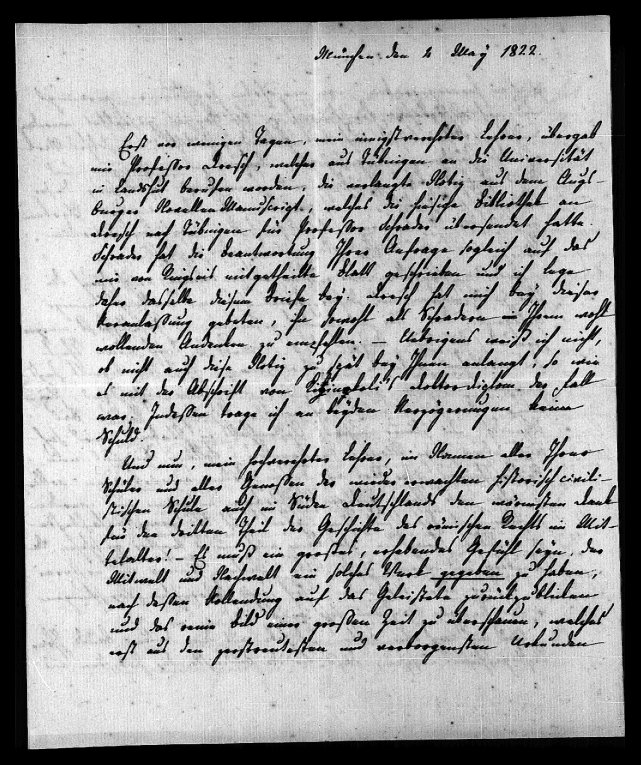 München den 2 May 1822.
Erst vor wenigen Tagen, mein innigstverehrter Lehrer, übergab
mir Professor Dresch, welcher aus Tübingen an die Universität
in Landshut berufen worden, die verlangte Notiz aus dem Augs
burger Novellen-Manuscript, welches die hiesige Bibliothek an
Dresch nach Tübingen für Professor Schrader übersendet hatte.
Schrader hat die Beantwortung Ihrer Anfrage sogleich auf das
mir von mitgetheilte Blatt geschrieben und ich lege
daher dasselbe diesem Briefe bey. Dresch hat mich bey dieser
Veranlassung gebeten, ihn sowohl als Schradern in Ihrem wohl
wollenden Andenken zu empfehlen. – Uebrigens weiß ich nicht,
ob nicht auch diese Notiz zu spät bey Ihnen anlangt, so wie
es mit der Abschrift von doktordiplom der Fall
war. Indessen trage ich an beyden Verzögerungen keine
Schuld.
Und nun, mein hochverehrter Lehrer, im Namen aller Ihrer
Schüler und aller Genossen der wieder erwachten historisch civili-
stischen Schule auch im Süden Deutschlands den wärmsten Dank
für den dritten Theil der Geschichte des römischen Rechts im Mit-
telalter! – Es muß ein großes, erhebendes Gefühl seyn, der
Mitwelt und Nachwelt ein solches Werk gegeben zu haben,
nach dessen Vollendung auf das Geleistete zurückzublicken
und das reine Bild einer großen Zeit zu überschauen, welches
erst aus den zerstreutesten und verborgensten Urkunden